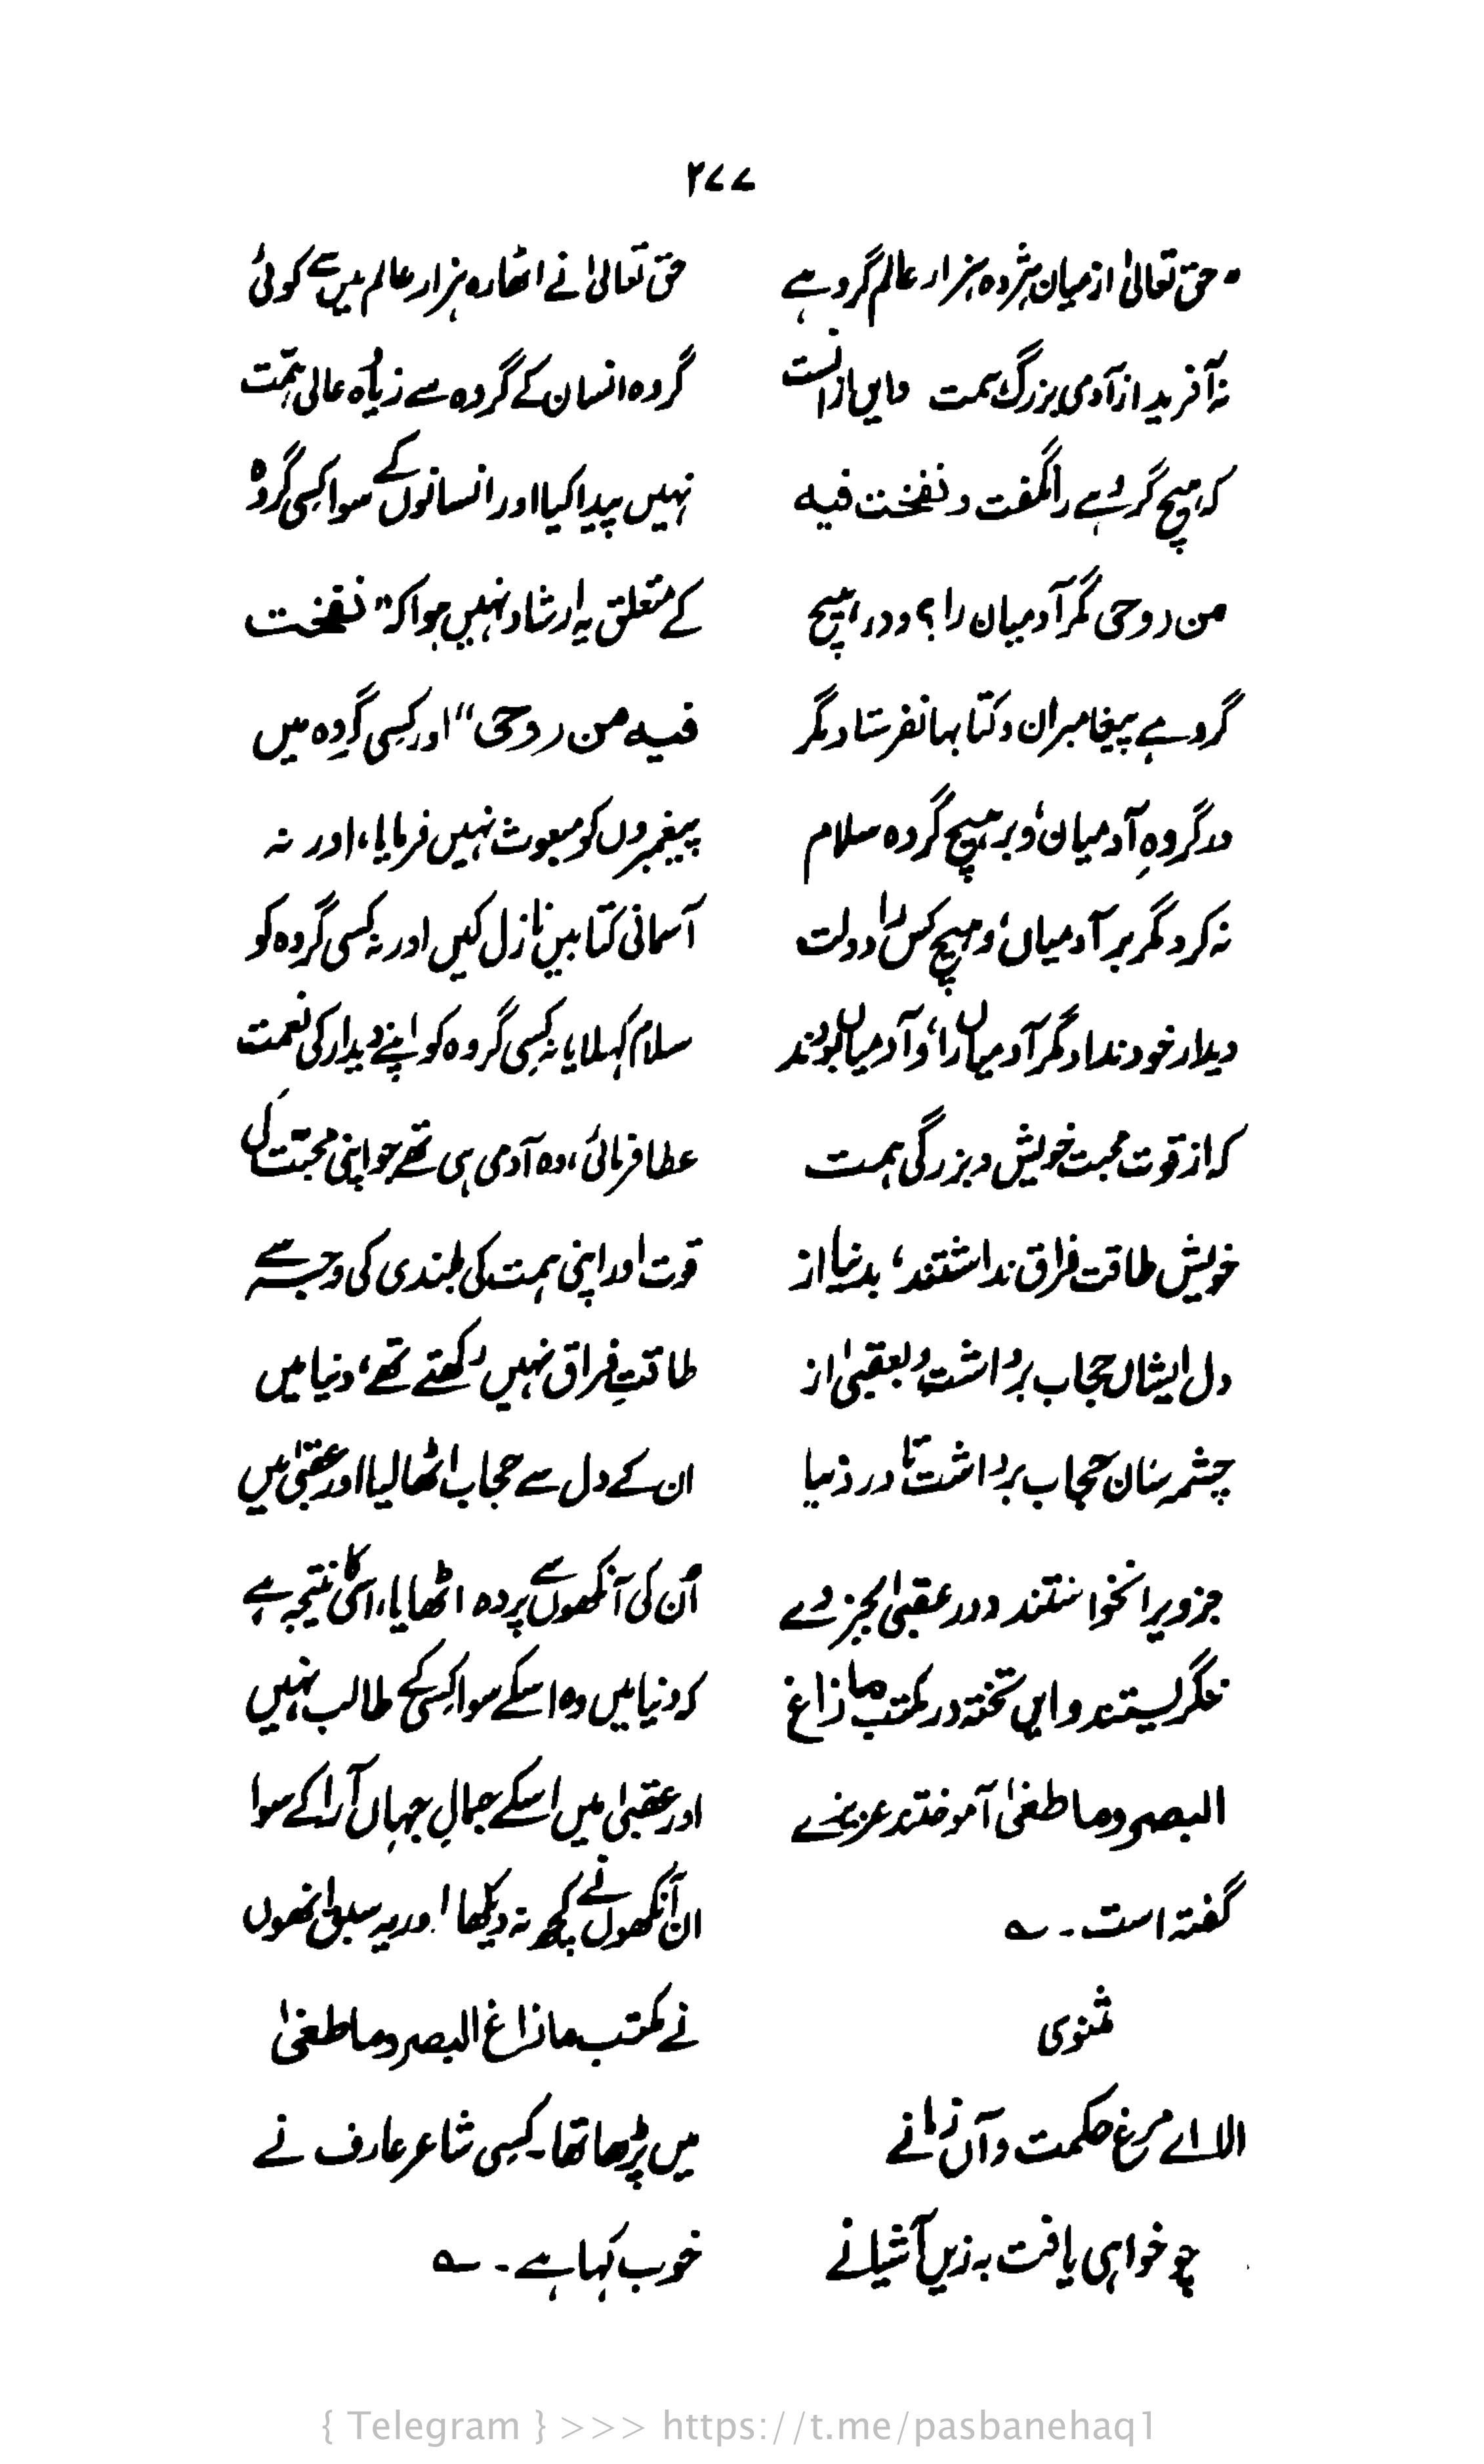 ۲۷۷
"حق تعالیٰ از میان ہژدہ ہزار عالم گروہے
نہ آفرید از آدمی بزرگ ہمت وایں ازانست
کہ ہیچ گروہے را نگفت و نفخت فیہ
من روحی مگر آدمیان را؟ و در ہیچ
گروہے پیغامبران و کتابہا نفرستاد مگر
در گروہِ آدمیان، و بر ہیچ گروہ سلام
نہ کرد مگر بر آدمیاں، و ہیچ کس را دولت
دیدار خود نداد مگر آدمیاں را، و آدمیاں بودند
کہ از قوت محبت خویش و بزرگی ہمت
خویش طاقت فراق نداشتند، بدنیا از
دل ایشاں حجاب برداشت و بعقبیٰ از
چشم شان حجاب برداشت تا در دنیا
جز ویرا نخواستند و در عقبیٰ بجز وے
ننگریستند و ایں تختہ در مکتب ما زاغ
البصر و ما طغیٰ آموختند عزیزے
گفتہ است۔ ؎
مثنوی
الا اے مرغ حکمت و آں زمانے
چو خواہی یافت بہ زیں آشیانے
حق تعالیٰ نے اٹھارہ ہزار عالم میں سے کوئی
گروہ انسان کے گروہ سے زیادہ عالی ہمّت
نہیں پیدا کیا اور انسانوں کے سوا کسی گروہ
کے متعلق یہ ارشاد نہیں ہوا کہ "نفخت
فیہ من روحی" اور کسی گروہ میں
پیغمبروں کو مبعوث نہیں فرمایا، اور نہ
آسمانی کتابیں نازل کیں اور نہ کسی گروہ کو
سلام کہلایا نہ کسی گروہ کو اپنے دیدار کی نعمت
عطا فرمائی، وہ آدمی ہی تھے جو اپنی محبّت کی
قوت اور اپنی ہمت کی بلندی کی وجہ سے
طاقتِ فراق نہیں رکھتے تھے، دنیا میں
ان کے دل سے حجاب اٹھا لیا اور عقبیٰ میں
اُن کی آنکھوں سے پردہ اٹھایا، اسی کا نتیجہ ہے
کہ دنیا میں وہ اسکے سوا کسی کے طالب نہیں
اور عقبیٰ میں اسکے جمالِ جہاں آرا کے سوا
ان آنکھوں نے کچھ نہ دیکھا اور یہ سبق انھوں
نے مکتب ما زاغ البصر و ما طغیٰ
میں پڑھا تھا۔ کسی شاعر عارف نے
خوب کہا ہے۔ ؎
{ Telegram } >>> https://t.me/pasbanehaq1